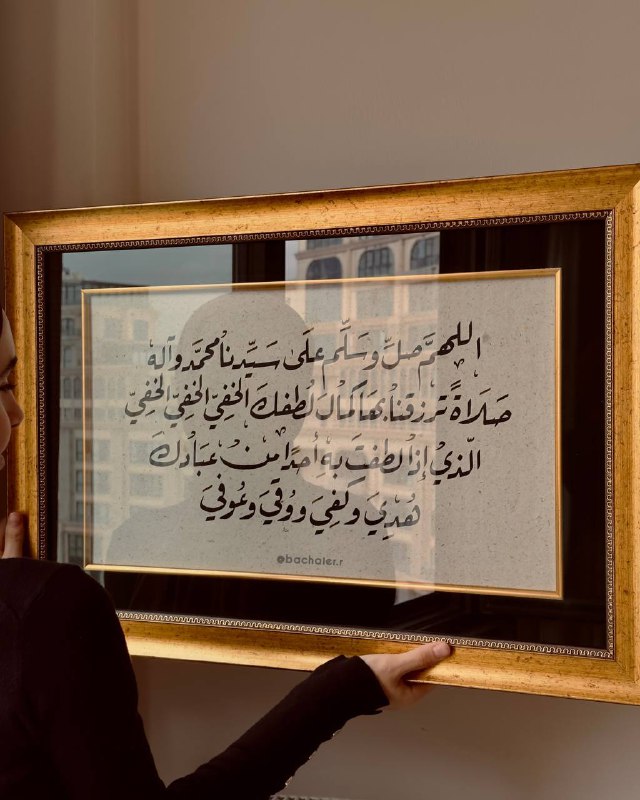 اللهم صلِّ وسَلِّم علَى سَيِّدنا محمَّد وآله
صَلاةً ترزقنا بها كمال لُطفك الخفيّ الخفيّ الخفيّ
الّذي إذا لطفتَ به أحدًا من عبَادكَ
هُدِيَ وكُفِيَ ووُقِيَ وعُوفي
@bachaier.r